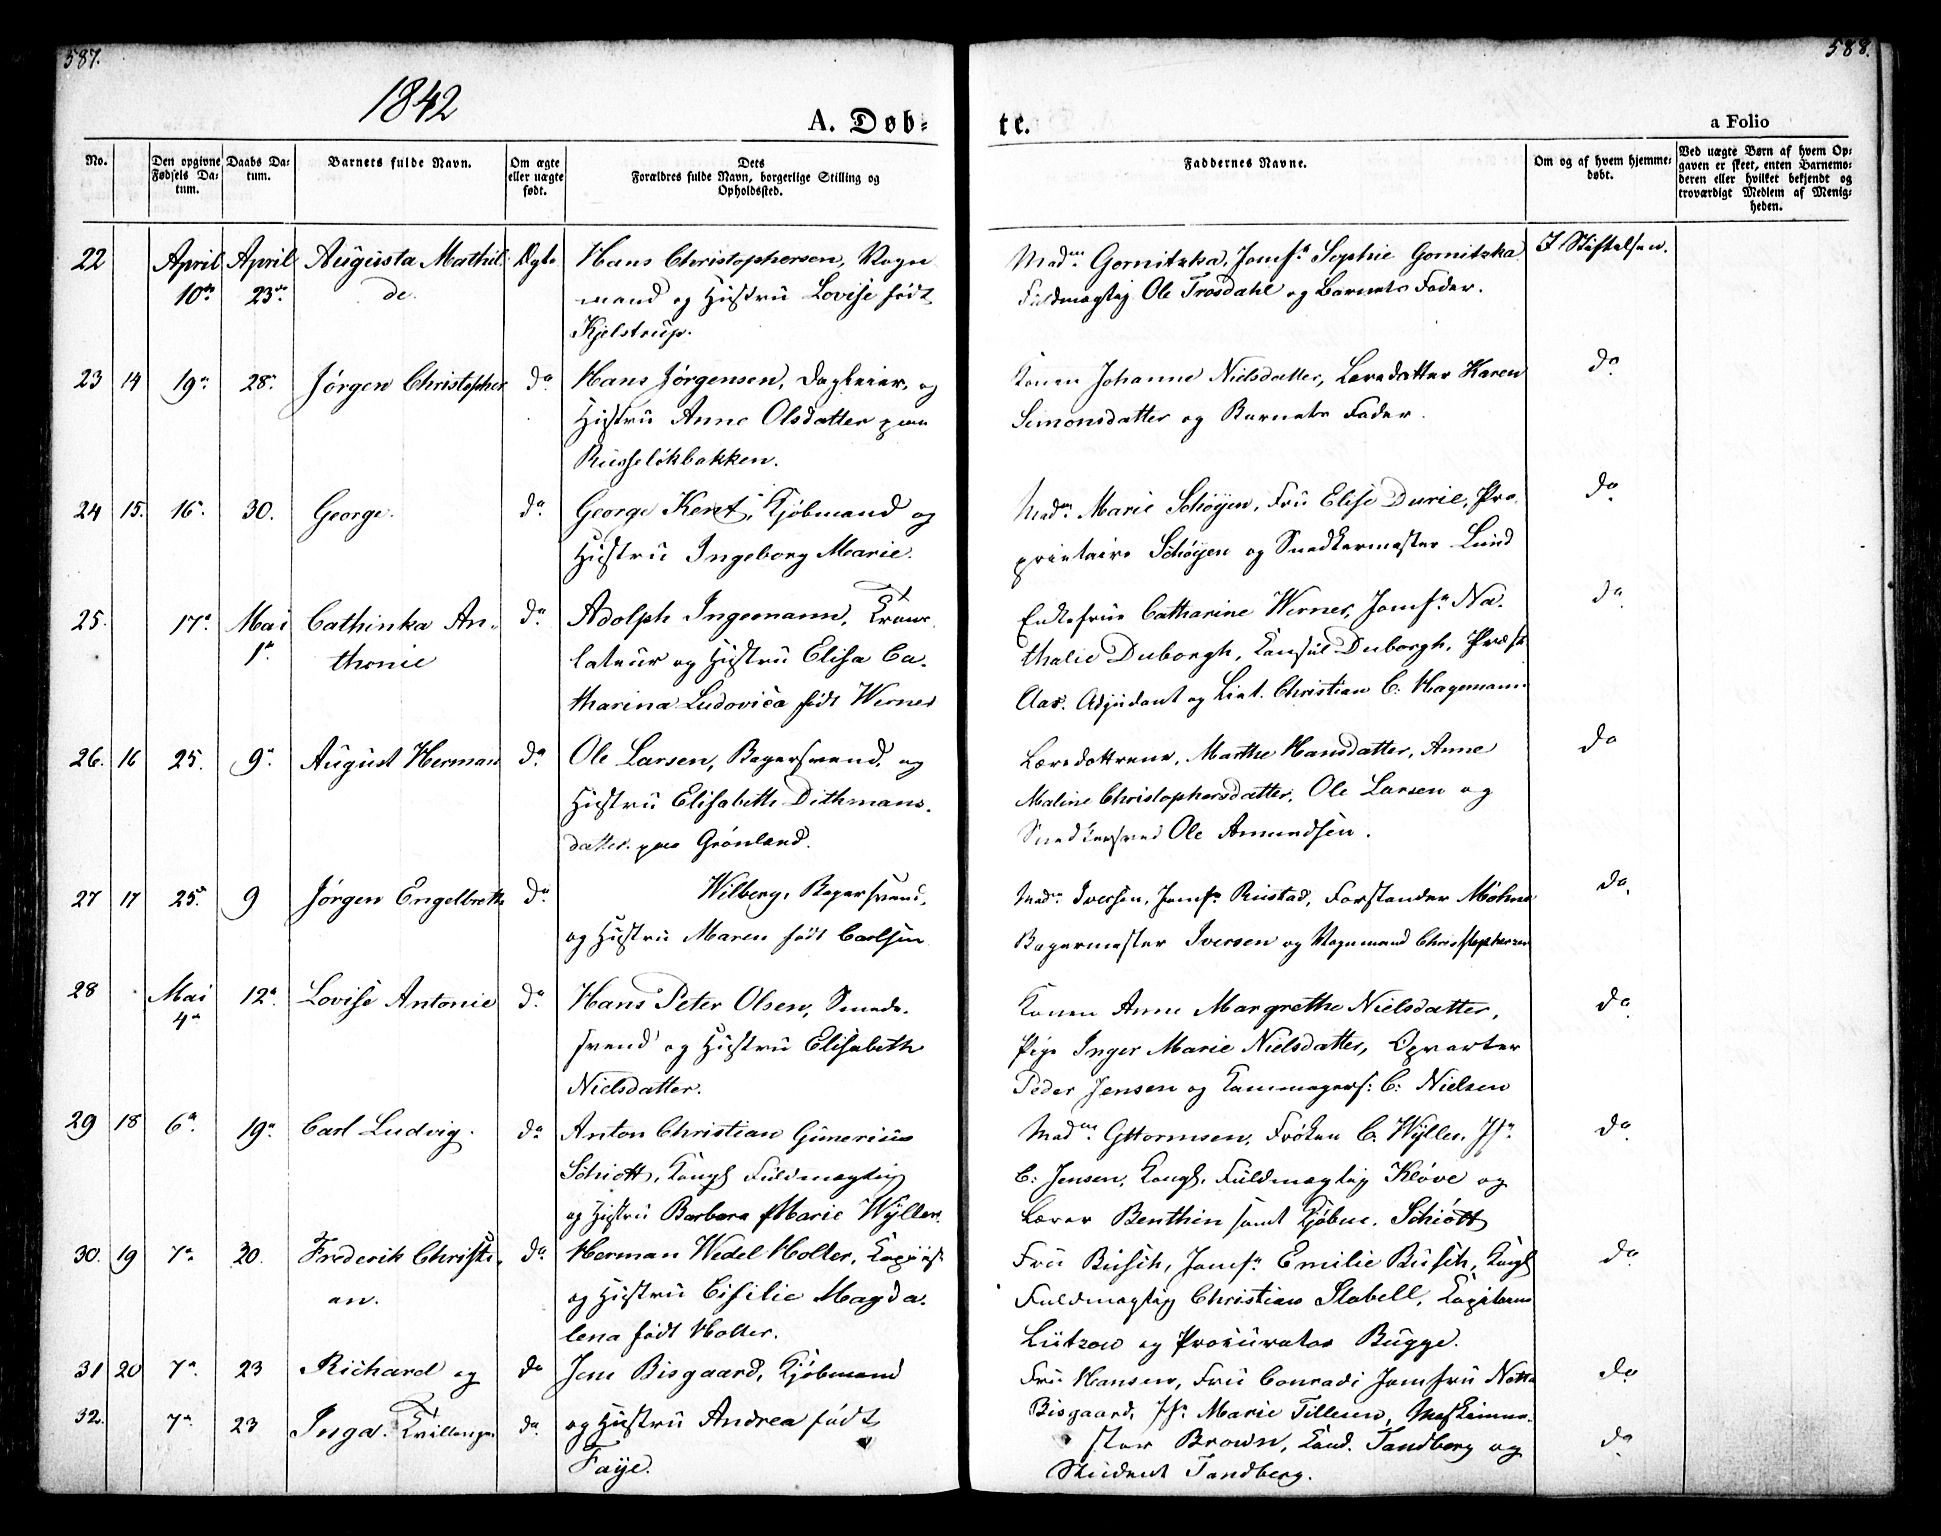 587.
588.
1842
A. Døb-
te.
a Folio
No.
Den opgivne Fødsels Datum.
Daabs Datum.
Barnets fulde Navn.
Om ægte eller uægte født.
Dets Forældres fulde Navn, borgerlige Stilling og Opholdssted.
Faddernes Navne.
Om og af hvem hjemmedøbt.
Ved uægte Børn af hvem Opgaven er skeet, enten Barnemoderen eller hvilket bekjendt og troværdigt Medlem af Menigheden.
22 April 10de April 23de Augusta Mathilde. Ægte
Hans Christophersen, Vogn
mand og Hustru Lovise født
Kjelstrup.
Madm. Gornitzka, Jomfr. Sophie Gornitzka
Fuldmægtig Ole Trosdahl og Barnets Fader.
I Stiftelsen.
23 14 19de 28de Jørgen Christopher do
Hans Jørgensen, Dagleier, og
Hustru Anne Olsdatter paa
Russeløkbakken.
Konen Johanne Nielsdatter, Læredatter Karen
Simonsdatter og Barnets Fader.
do
24 15. 16. 30. George. do
George Keret, Kjøbmand og
Hustru Ingeborg Marie.
Madm. Marie Schøyen, Fru Elise Durie, Pro-
prietaire Schøyen og Snedkermester Lund
do
25. 17de Mai 1ste Cathinka An-
thonie do
Adolph Ingemann, Trans-
lateur og Hustru Elisa Ca-
tharina Ludovica født Werner
Enkefrue Catharine Werner, Jomfr. Na-
thalie Duborgh, Consul Duborgh, Præst
Aas. Adjudant og Lieut. Christian C. Hagemann
do
26. 16 25. 9de August Herman do
Ole Larsen, Bagersvend, og
Hustru Elisabeth Dithmans-
datter paa Grønland.
Læredøttrene, Marthe Hansdatter, Anne
Maline Christophersdatter, Ole Larsen og
Snedkersvend Ole Amundsen.
do
27 17 25. 9 Jørgen Engelbreth do
Wilberg, Bagersvend,
og Hustru Maren født Carlsen
Madm. Iversen, Jomfr. Rustad, Forstander Mohn
Bagermester Iversen og Vognmand Christophersen
do.
28 Mai 4de 12te Lovise Antonie do
Hans Peter Olsen, Smede-
svend og Hustru Elisabeth
Nielsdatter.
Konen Anne Margrethe Nielsdatter,
Pige Inger Marie Nielsdatter, Opvarter
Peder Jensen og Kammagers: C: Nielsen
do
29 18 6te 19de Carl Ludvig. do
Anton Christian Gunerius
Schiøtt, Kongl. Fuldmægtig
og Hustru Barbara Marie Wyller.
Madm. Gttormsen, Frøken C. Wyller, Jfr.
C: Jensen, Kongl. Fuldmægtig Kløve og
Lærer Benthin samt Kjøbm. Schiøtt
do
30. 19 7de 20. Frederik Christi-
an. do
Herman Wedel Holter, Copiist
og Hustru Cisilie Magda-
lena født Holter.
Fru Busch, Jomfr. Emilie Busch, Kongl.
Fuldmægtig Christian Stabell, Capitaine
Lützow og Procurator Bugge.
do
31 20 7de 23 Richard og do
32. 7de 23 Inga. Tvillinger do
Jens Bisgaard, Kjøbmand
og Hustru Andrea født
Faye.
Fru Hansen, Fru Conradi Jomfru Netta
Bisgaard, Jfr. Marie Tillesen, Maskinme-
ster Brown, Cand. Tandberg og
Student Tandberg.
do
do